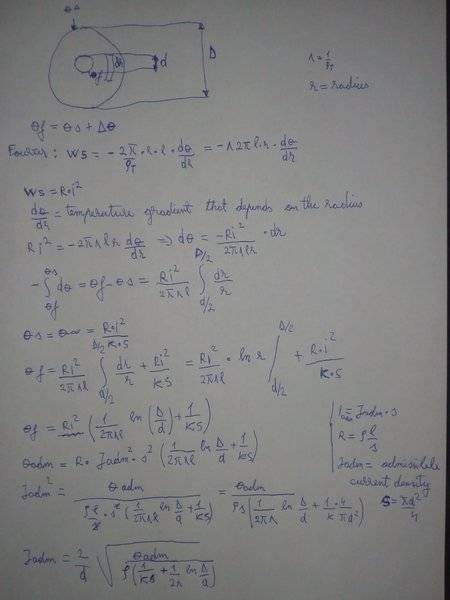 θa
dr
d
Δ
θf
Λ = 1/ρT
r = radius
θf = θs + Δθ
Fourier: Ws = - 2π/ρT · r · l · dθ/dr = -Λ 2π l · r · dθ/dr
Ws = R · i²
dθ/dr = temperature gradient that depends on the radius
Ri² = -2πΛlr dθ/dr ⇒ dθ = -Ri²/2πΛlr · dr
-∫θf^θs dθ = θf - θs = Ri²/2πΛl ∫d/2^Δ/2 dr/r
θs = θ∞ = R·i²/K·S
θf = Ri²/2πΛl ∫d/2^Δ/2 dr/r + Ri²/KS = Ri²/2πΛl · ln r |d/2^Δ/2 + R·i²/K·S
θf = Ri² (1/2πΛl ln(Δ/d) + 1/KS)
Iadm = Jadm · s
θadm = R · Jadm² · s² (1/2πΛl ln Δ/d + 1/KS)
R = ρ l/s
Jadm = admissible current density
Jadm² = θadm / ρl/s · s² (1/2πΛl ln Δ/d + 1/KS) = θadm / ρs (1/2πΛ ln Δ/d + 1/K · 4/πd²)
S = πd²/4
Jadm = 2/d √ θadm / ρ (1/KS + 1/2Λ ln Δ/d)